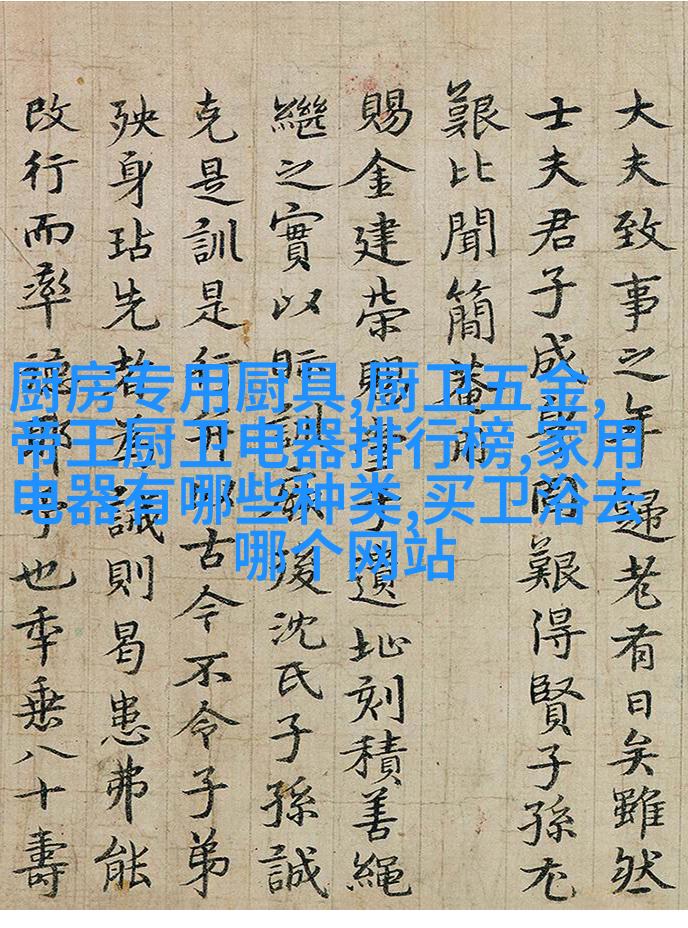 大夫致事之年歸老有日矣雖然
士夫君子成艱得賢子孫尤
艱比聞簡菴
賜金建荣賜遺址刻積善繩
繼之實以貽訓後沈氏子孫誠
克是訓是行古今不令子弟
殃身玷先者為誡則曷患弗能
改行而率也季垂八十壽
厨房专用厨具,厨卫五金,
帝王厨卫电器排行榜,家用
电器有哪些种类,买卫浴去
哪个网站